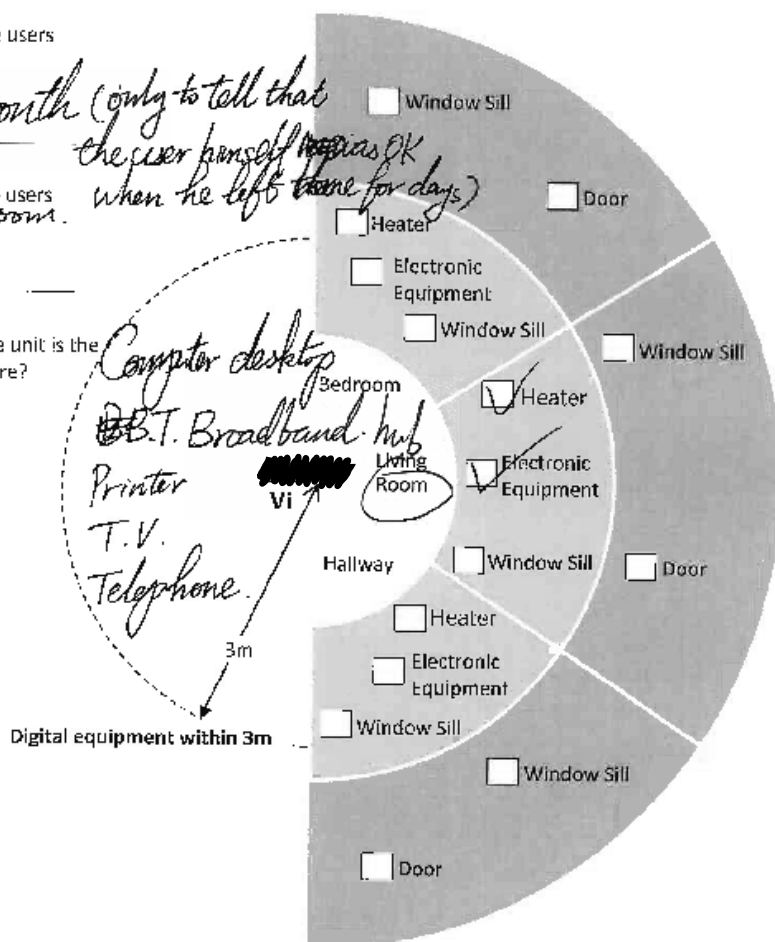 users
onth (only to tell that
the user himself was OK
when he left home for days)
users
room.
e unit is the
re?
Computer desktop
B.T. Broadband hub
Printer
T.V.
Telephone
Vi
3m
Digital equipment within 3m
Bedroom
Living
Room
Hallway
Window Sill
Door
Heater
Electronic
Equipment
Window Sill
Window Sill
Heater
Electronic
Equipment
Window Sill
Door
Heater
Electronic
Equipment
Window Sill
Window Sill
Door